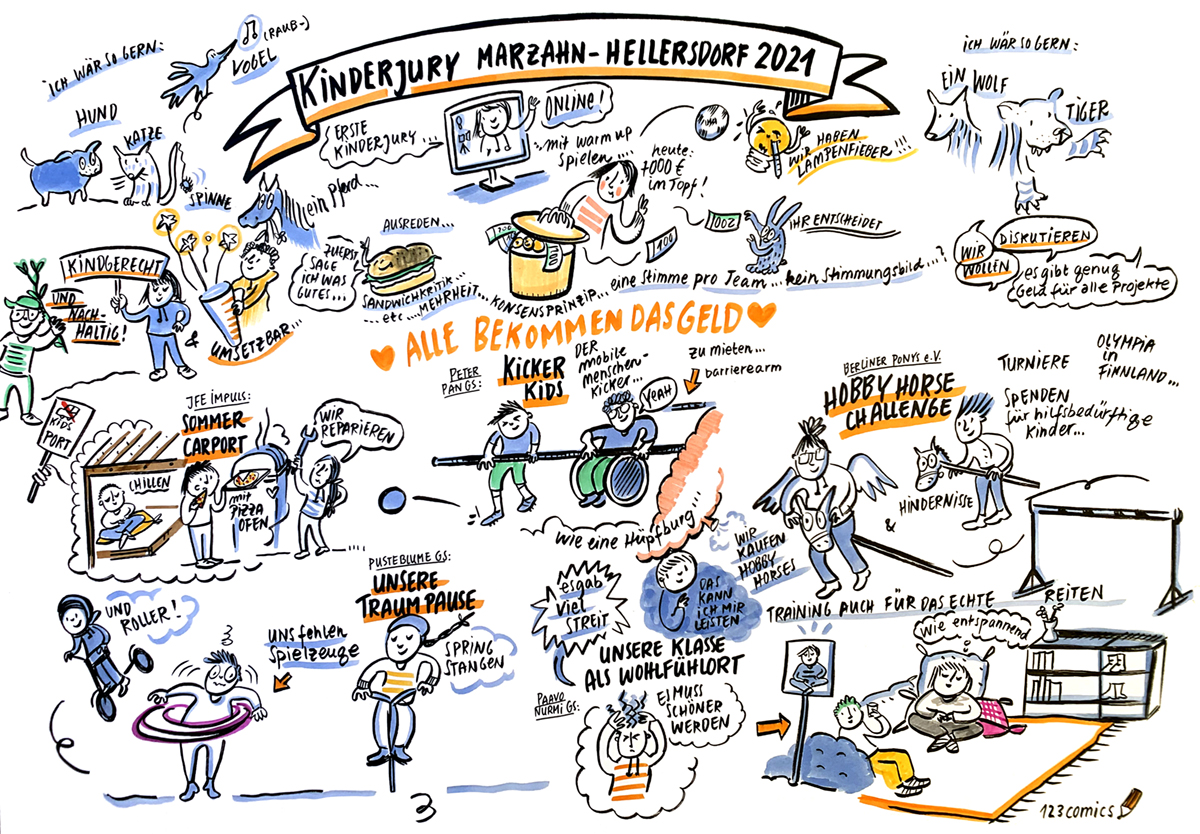 KINDERJURY MARZAHN-HELLERSDORF 2021
ICH WÄR SO GERN:
(RAUB-)
VOGEL
HUND
KATZE
SPINNE
ein Pferd...
ERSTE
KINDERJURY...
ONLINE!
mit warm up
spielen...
heute:
7000 €
im Topf!
WIR HABEN
LAMPENFIEBER!!!
ICH WÄR SO GERN:
EIN WOLF
TIGER
KINDGERECHT
UND
NACH-
HALTIG!
&
UMSETZBAR...
ZUERST
SAGE
ICH WAS
GUTES...
AUSREDEN...
SANDWICHKRITIK
...etc...MEHRHEIT...
KONSENSPRINZIP...
100
200
IHR ENTSCHEIDET
eine Stimme pro Team... kein Stimmungsbild...?
WIR
WOLLEN
DISKUTIEREN
es gibt genug
Geld für alle Projekte
ALLE BEKOMMEN DAS GELD
KIDS
PORT
JFE IMPULS:
SOMMER
CARPORT
CHILLEN
mit
PIZZA
OFEN
WIR
REPARIEREN
PETER
PAN GS:
KICKER
KIDS
DER
mobile
menschen-
kicker...
YEAH
zu mieten...
barrierearm
wie eine Hüpfburg!!
BERLINER PONYS e.V.
HOBBY HORSE
CHALLENGE
TURNIERE
OLYMPIA
in
FINNLAND...
SPENDEN
für hilfsbedürftige
Kinder...
&
HINDERNISSE
WIR
KAUFEN
HOBBY
HORSES
TRAINING AUCH FÜR DAS ECHTE REITEN
UND
ROLLER!
uns fehlen
Spielzeuge
PUSTEBLUME GS:
UNSERE
TRAUMPAUSE
SPRING
STANGEN
es gab
viel
STREIT
DAS
KANN
ICH MIR
LEISTEN
UNSERE KLASSE
ALS WOHLFÜHLORT
PAAVO
NURMI GS:
E! MUSS
SCHÖNER
WERDEN
wie entspannend
123comics